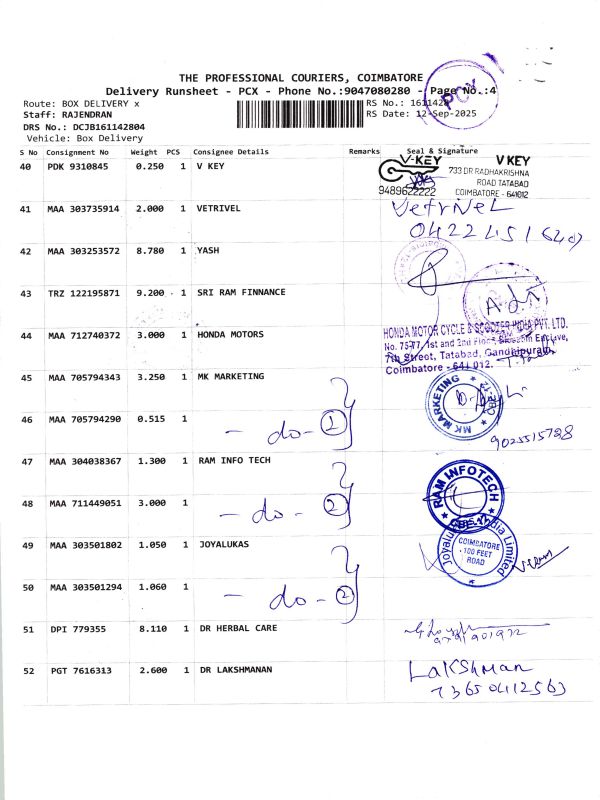 THE PROFESSIONAL COURIERS, COIMBATORE
Delivery Runsheet - PCX - Phone No.:9047080280 - Page No.:4
PCX
Route: BOX DELIVERY x
RS No.: 1611428
Staff: RAJENDRAN
RS Date: 12-Sep-2025
DRS No.: DCJB161142804
Vehicle: Box Delivery
S No Consignment No Weight PCS Consignee Details Remarks Seal & Signature
40 PDK 9310845 0.250 1 V KEY
V-KEY
9489622222
V KEY
733 DR RADHAKRISHNA
ROAD TATABAD
COIMBATORE - 641012
41 MAA 303735914 2.000 1 VETRIVEL
VetriVeL
0422 4516409
42 MAA 303253572 8.780 1 YASH
43 TRZ 122195871 9.200 1 SRI RAM FINNANCE
44 MAA 712740372 3.000 1 HONDA MOTORS
HONDA MOTOR CYCLE & SCOOTER INDIA PVT. LTD.
No. 75-77, 1st and 2nd Floor, Blossom Enclave,
7th Street, Tatabad, Gandhipuram
Coimbatore - 641 012.
45 MAA 705794343 3.250 1 MK MARKETING
MK MARKETING CBE-12
46 MAA 705794290 0.515 1
- do - 2
9025515728
47 MAA 304038367 1.300 1 RAM INFO TECH
RAM INFOTECH
48 MAA 711449051 3.000 1
- do - 2
49 MAA 303501802 1.050 1 JOYALUKAS
Joyalukkas India Limited
COIMBATORE
100 FEET
ROAD
50 MAA 303501294 1.060 1
- do - 2
51 DPI 779355 8.110 1 DR HERBAL CARE
52 PGT 7616313 2.600 1 DR LAKSHMANAN
LaKSHman
73650412563